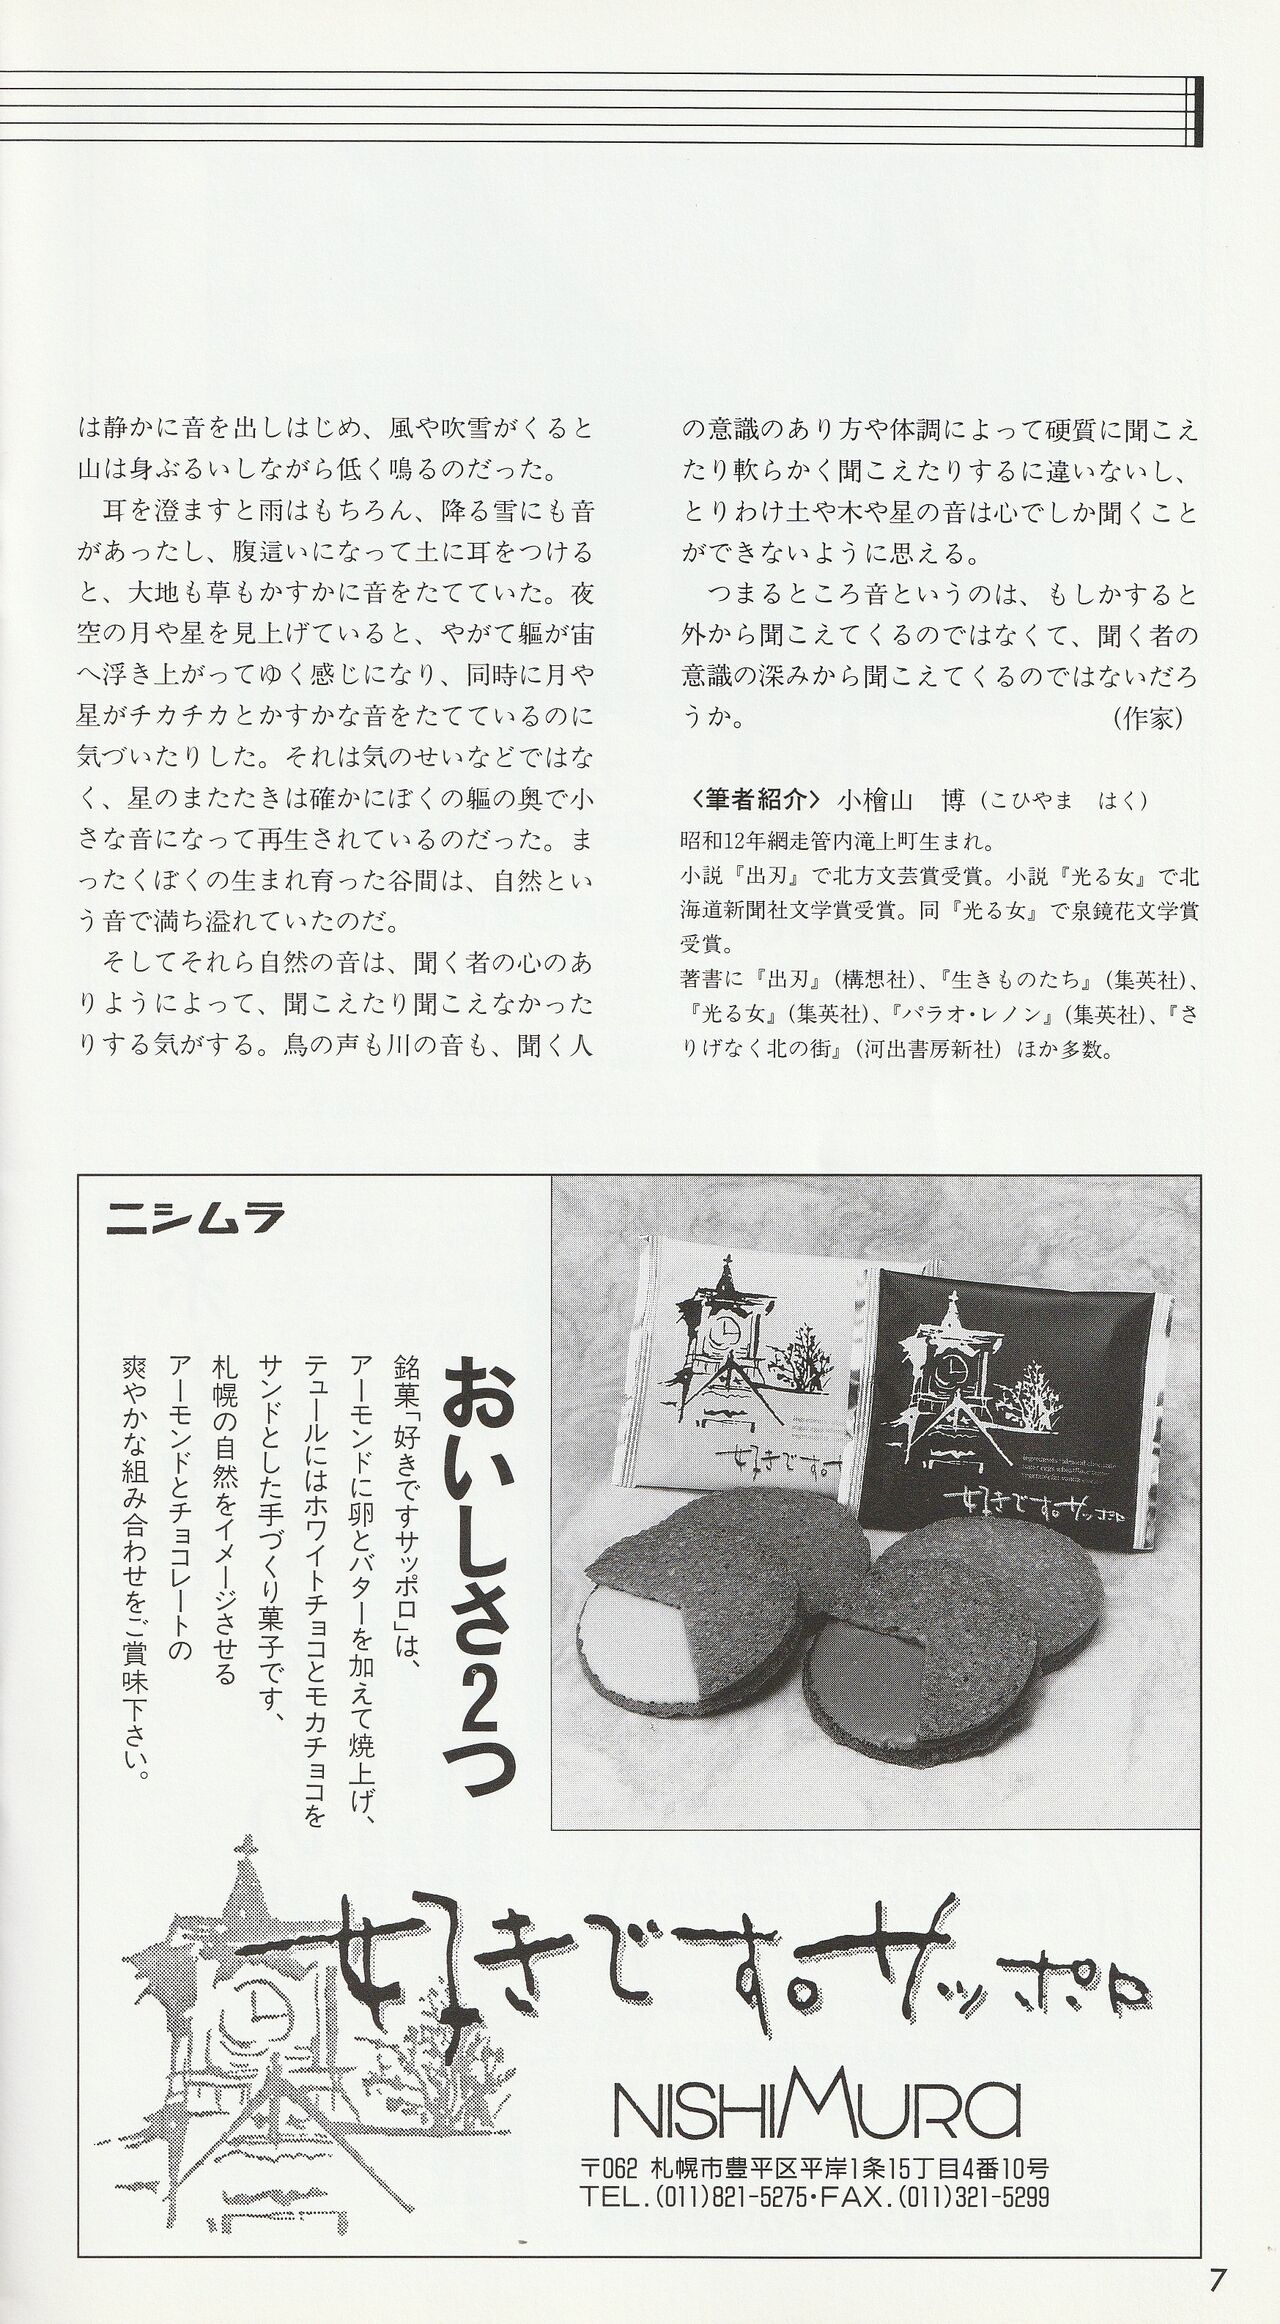 は静かに音を出しはじめ、風や吹雪がくると
山は身ぶるいしながら低く鳴るのだった。
　耳を澄ますと雨はもちろん、降る雪にも音
があったし、腹這いになって土に耳をつける
と、大地も草もかすかに音をたてていた。夜
空の月や星を見上げていると、やがて軀が宙
へ浮き上がってゆく感じになり、同時に月や
星がチカチカとかすかな音をたてているのに
気づいたりした。それは気のせいなどではな
く、星のまたたきは確かにぼくの軀の奥で小
さな音になって再生されているのだった。ま
ったくぼくの生まれ育った谷間は、自然とい
う音で満ち溢れていたのだ。
　そしてそれら自然の音は、聞く者の心のあ
りようによって、聞こえたり聞こえなかった
りする気がする。鳥の声も川の音も、聞く人
の意識のあり方や体調によって硬質に聞こえ
たり軟らかく聞こえたりするに違いないし、
とりわけ土や木や星の音は心でしか聞くこと
ができないように思える。
　つまるところ音というのは、もしかすると
外から聞こえてくるのではなくて、聞く者の
意識の深みから聞こえてくるのではないだろ
うか。　（作家）
〈筆者紹介〉小檜山　博（こひやま　はく）
昭和12年網走管内滝上町生まれ。
小説『出刃』で北方文芸賞受賞。小説『光る女』で北
海道新聞社文学賞受賞。同『光る女』で泉鏡花文学賞
受賞。
著書に『出刃』（構想社）、『生きものたち』（集英社）、
『光る女』（集英社）、『パラオ・レノン』（集英社）、『さ
りげなく北の街』（河出書房新社）ほか多数。
ニシムラ
好きです。サッポ
好きです。サッポロ
おいしさ2つ
銘菓「好きですサッポロ」は、
アーモンドに卵とバターを加えて焼上げ、
テュールにはホワイトチョコとモカチョコを
サンドとした手づくり菓子です、
札幌の自然をイメージさせる
アーモンドとチョコレートの
爽やかな組み合わせをご賞味下さい。
好きです。サッポロ
NISHIMURA
〒062 札幌市豊平区平岸1条15丁目4番10号
TEL.(011)821-5275・FAX.(011)321-5299
7